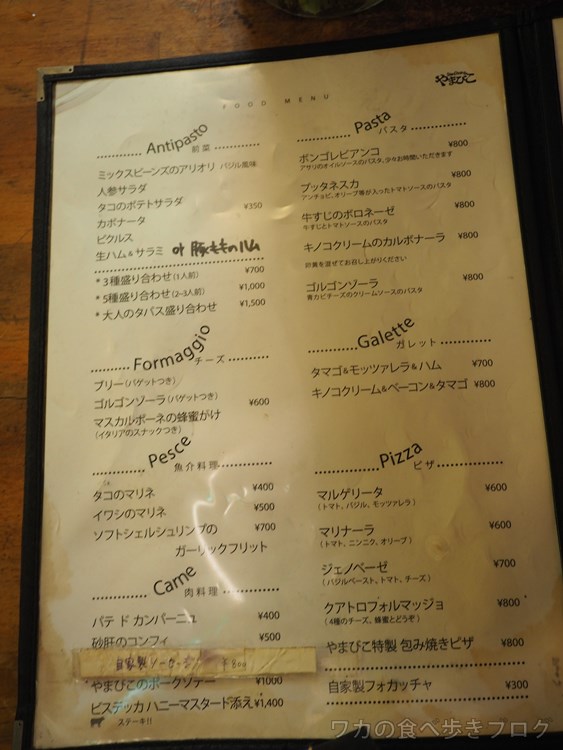 やまびこ
FOOD MENU
Antipasto
前菜
ミックスビーンズのアリオリ バジル風味
人参サラダ
タコのポテトサラダ ¥350
カポナータ
ピクルス
生ハム&サラミ or 豚もものハム
*3種盛り合わせ(1人前) ¥700
*5種盛り合わせ(2~3人前) ¥1,000
*大人のタパス盛り合わせ ¥1,500
Formaggio
チーズ
ブリー(バゲットつき)
ゴルゴンゾーラ(バゲットつき)
マスカルポーネの蜂蜜がけ ¥600
(イタリアのスナックつき)
Pesce
魚介料理
タコのマリネ ¥400
イワシのマリネ ¥500
ソフトシェルシュリンプの ¥700
ガーリックフリット
Carne
肉料理
パテ ド カンパーニュ ¥400
砂肝のコンフィ ¥500
自家製ソーセージ ¥800
やまびこのポークソテー ¥1000
ビステッカ ハニーマスタード添え ¥1,400
ステーキ!!
Pasta
パスタ
ボンゴレビアンコ ¥800
アサリのオイルソースのパスタ、少々お時間いただきます
プッタネスカ ¥800
アンチョビ、オリーブ等が入ったトマトソースのパスタ
牛すじのボロネーゼ ¥800
牛すじとトマトソースのパスタ
キノコクリームのカルボナーラ ¥800
卵黄を混ぜてお召し上がりください
ゴルゴンゾーラ ¥800
青カビチーズのクリームソースのパスタ
Galette
ガレット
タマゴ&モッツァレラ&ハム ¥700
キノコクリーム&ベーコン&タマゴ ¥800
Pizza
ピザ
マルゲリータ ¥600
(トマト、バジル、モッツァレラ)
マリナーラ ¥600
(トマト、ニンニク、オリーブ)
ジェノベーゼ ¥700
(バジルペースト、トマト、チーズ)
クアトロフォルマッジョ ¥800
(4種のチーズ、蜂蜜とどうぞ)
やまびこ特製 包み焼きピザ ¥800
自家製フォカッチャ ¥300
ワカの食べ歩きブログ